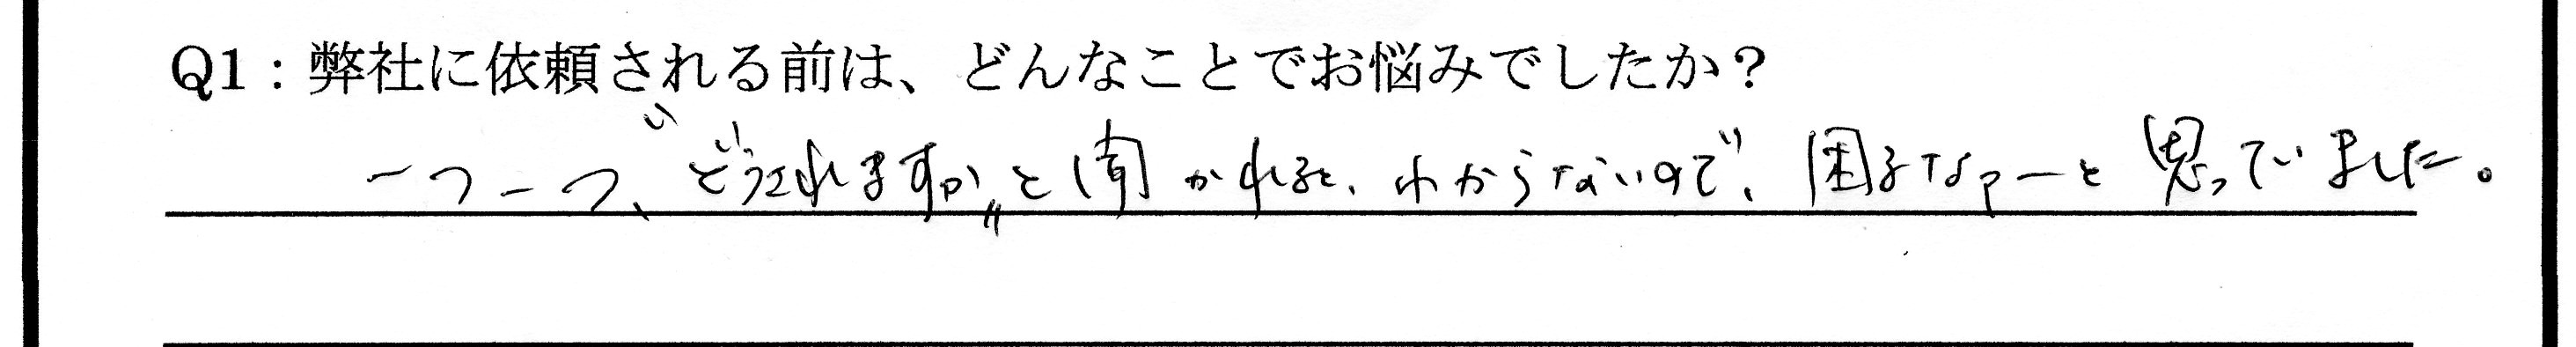 Q1：弊社に依頼される前は、どんなことでお悩みでしたか？
一つ一つ、"どうされますか"と聞かれると、わからないので、困るなァーと思っていました。